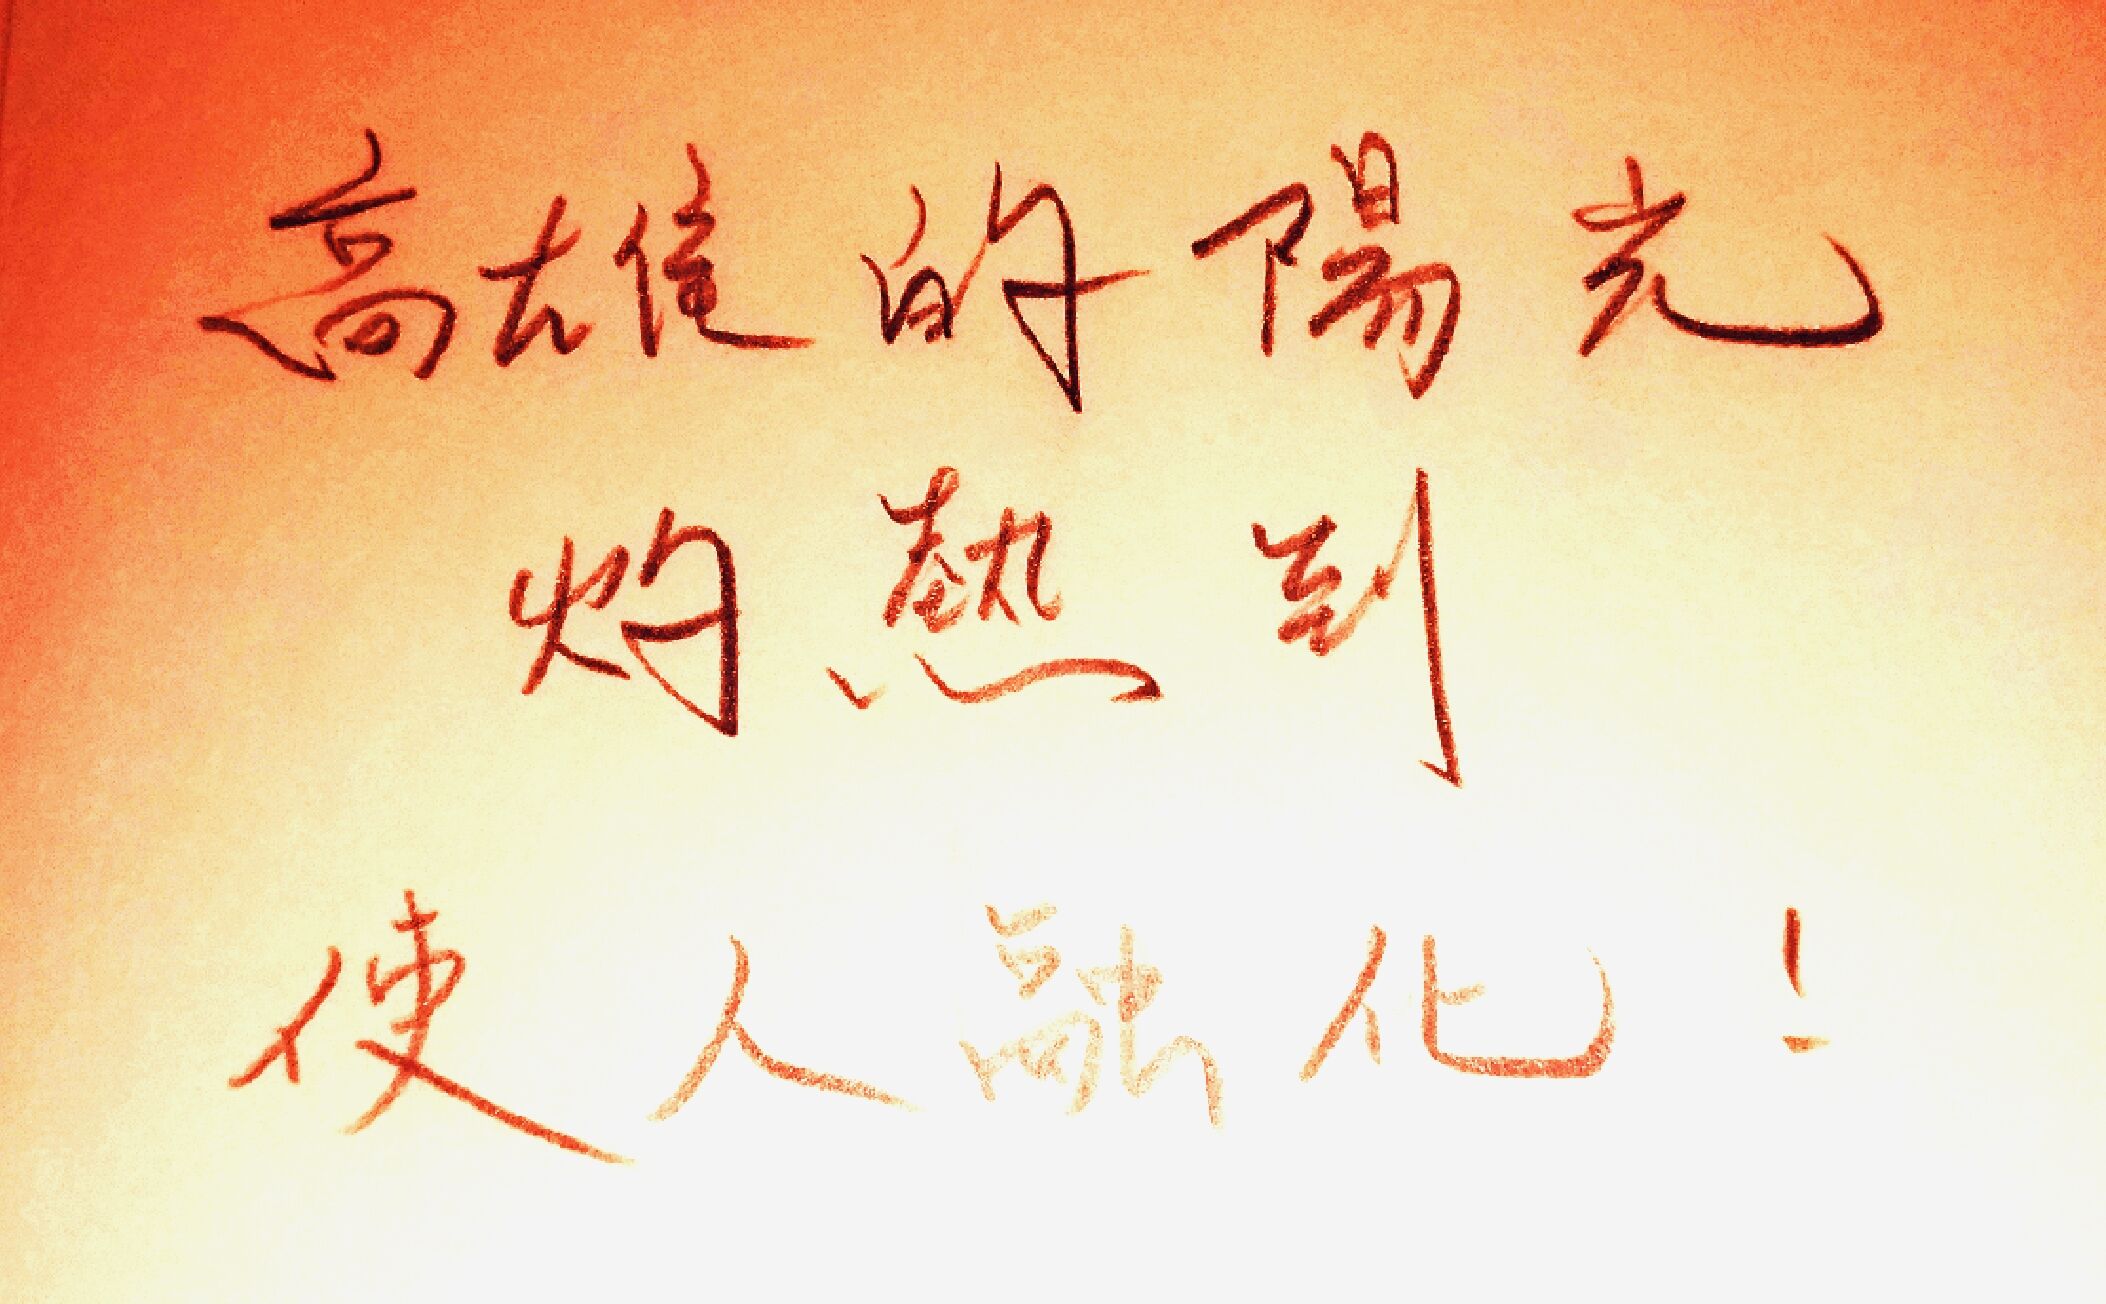 高雄的陽光
灼熱到
使人融化!